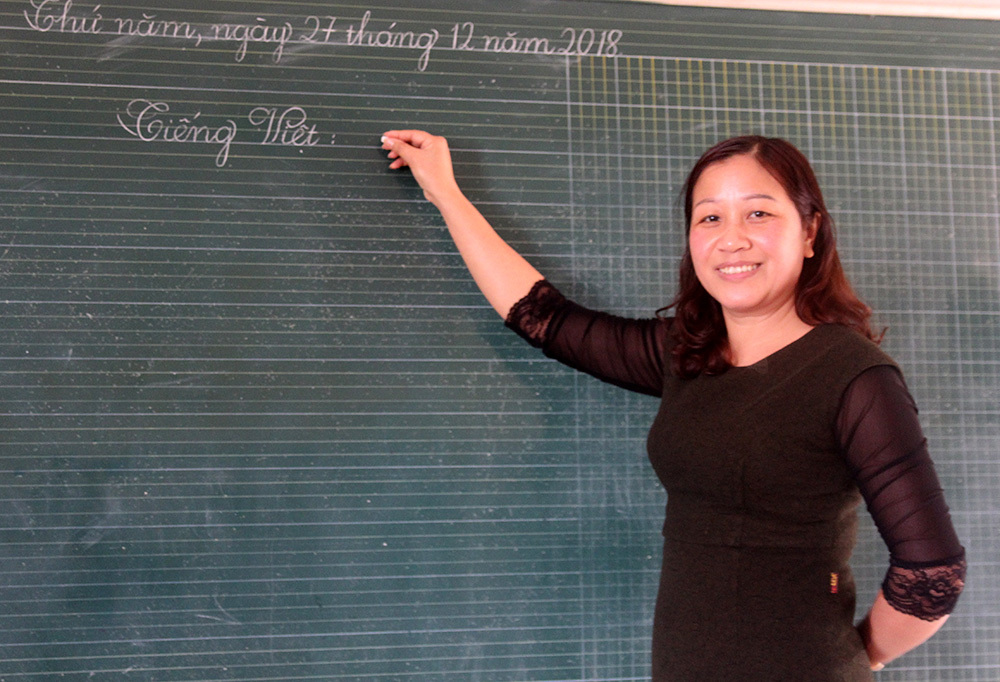 Thứ năm, ngày 27 tháng 12 năm 2018
Tiếng Việt :